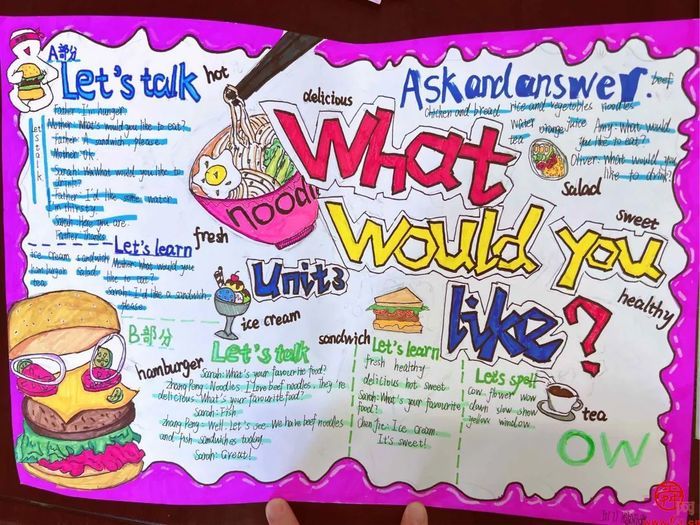 A部分
Let's talk
hot
Father: I'm hungry.
Mother: What's would you like to eat?
Father: A sandwich, please
Mother: OK.
Sarah: What would you like to
drink?
Father: I'd like some water.
I'm thirsty.
Sarah: Here you are.
Father: Thanks
Let's talk
fresh
Let's learn
ice cream sandwich
hamburger salad
tea
Mother: What would you
like to eat?
Sarah: I'd like a sandwich,
please.
delicious
noodl
What
would you
like?
Unit3
ice cream
Ask and answer.
beef
chicken and bread rice and vegetables noodles
water orange juice
tea
Amy: What would
you like to eat?
Oliver: What would you
like to drink?
salad
sweet
healthy
B部分
hamburger
Let's talk
Sarah: What's your favourite food?
Zhang Peng: Noodles. I love beef noodles. They're
delicious. What's your favourite food?
Sarah: Fish
Zhang Peng: Well. Let's see. We have beef noodles
and fish sandwiches today
Sarah: Great!
sandwich
Let's learn
fresh healthy
delicious hot sweet
Sarah: What's your favourite
food?
Chen Jie: Ice cream.
It's sweet!
Let's spell
cow flower wow
down slow snow
yellow window
tea
ow